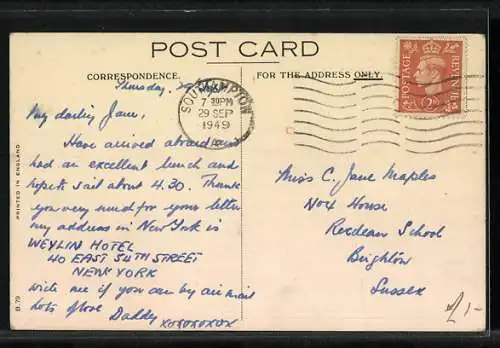 POST CARD
CORRESPONDENCE.
FOR THE ADDRESS ONLY.
Thursday,
My darling Jane,
Have arrived aboard and
had an excellent lunch and
hope to sail about 4.30. Thank
you very much for your letter
my address in New York is
WEYLIN HOTEL
40 EAST 54TH STREET
NEW YORK
write me if you can by air mail
lots of love Daddy xoxoxoxox
SOUTHAMPTON
7 30 PM
29 SEP
1949
POSTAGE
REVENUE
2D
Miss C. Jane Maples
No 4 House
Roedean School
Brighton
Sussex
£1-
PRINTED IN ENGLAND
B.79